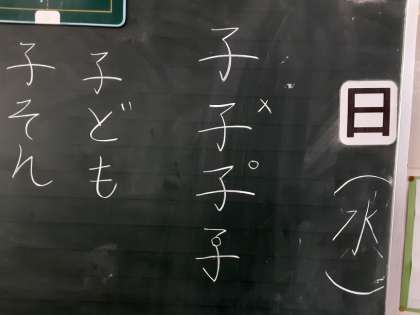 日
(水)
子
子×
子○
子
子ども
子そん